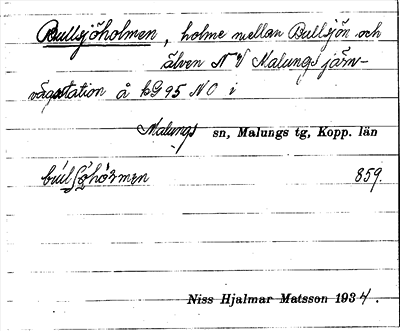 Bullsjöholmen, holme mellan Bullsjön och
älven N V Malungs järn-
vägsstation å kG 95 NO i
Malungs sn, Malungs tg, Kopp. län
859.
Niss Hjalmar Matsson 1934.